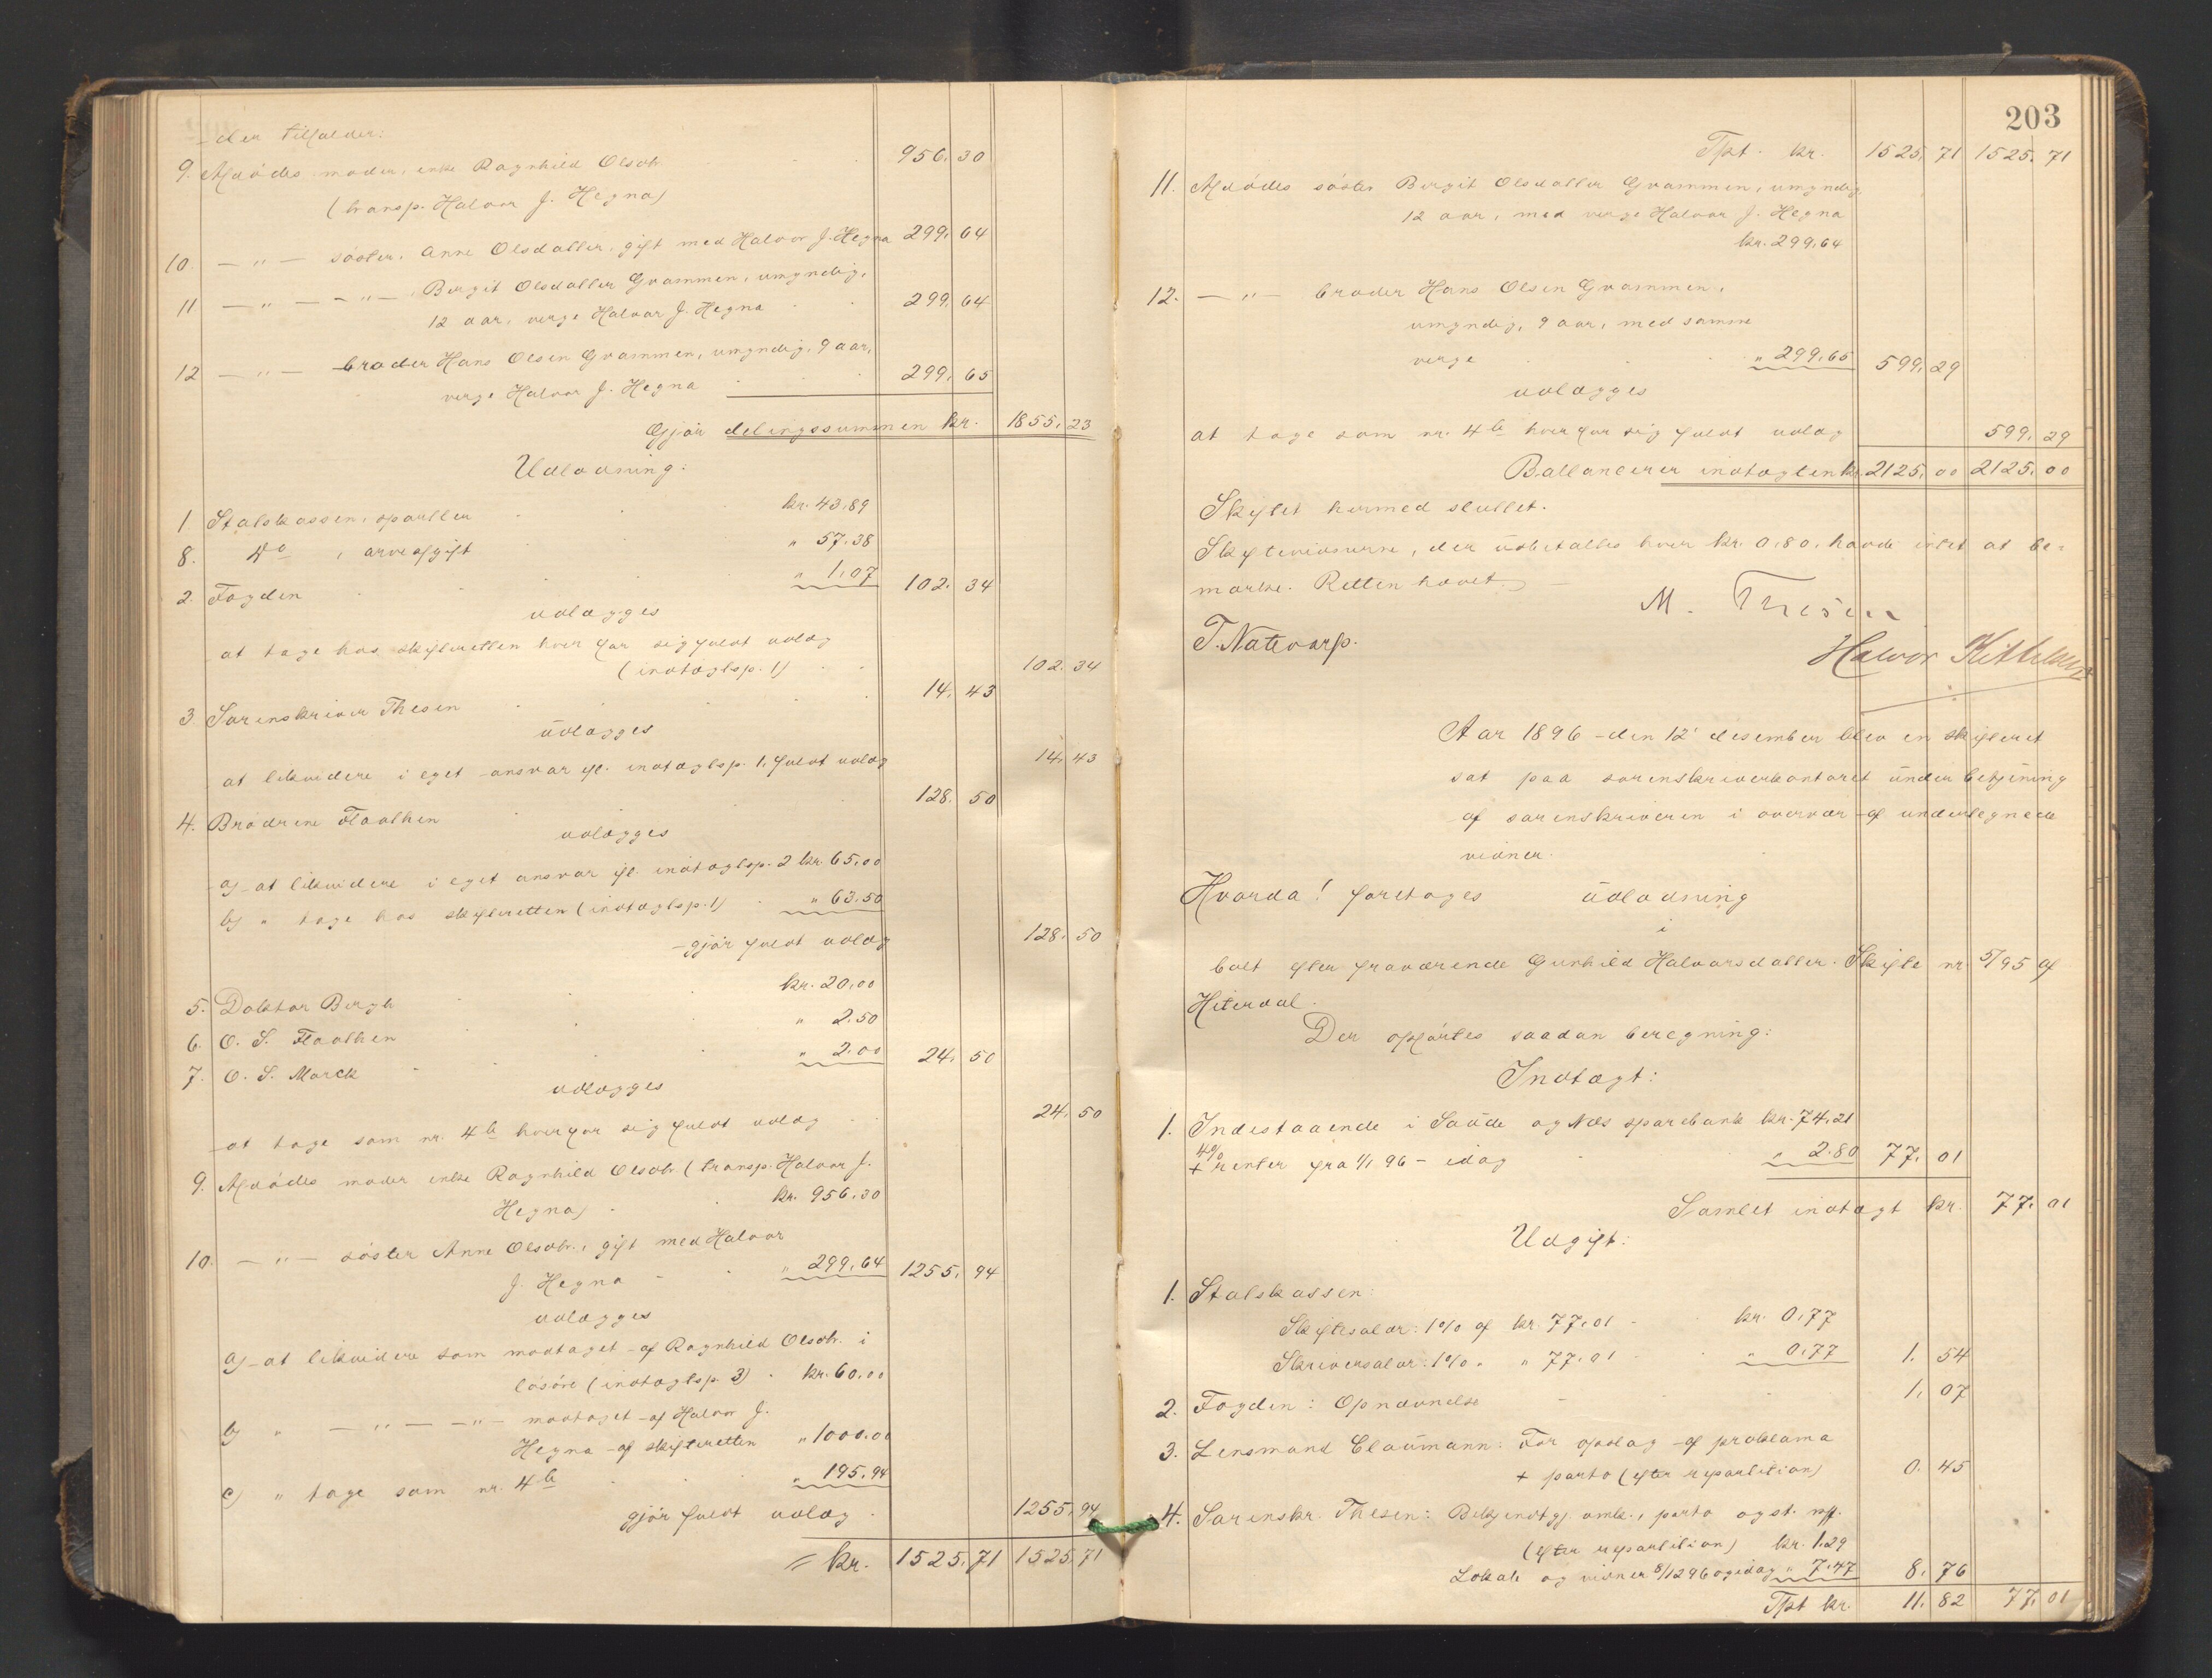 der tilfalder:
9. Afdødes moder, enke Ragnhild Olsdtr. 956. 30
(transp. Halvor J. Hegna)
10. — " — søster, Anne Olsdatter, gift med Halvor J. Hegna 299. 64
11 — " — — " — Birgit Olsdatter Grammen, umyndig,
12 aar, verge Halvor J. Hegna 299. 64
12 — " — broder Hans Olsen Grammen, umyndig, 9 aar,
verge Halvor J. Hegna 299. 65
Gjør delingssummen kr. 1855. 23
Udlodning:
1 Statskassen, sportler kr. 43,89
8. Do , arveafgift " 57.38
2. Fogden " 1,07 102. 34
udlægges
at tage hos skifteretten hver for sig fuldt udlæg
(indtægtsp. 1) 102. 34
3. Sorenskriver Thesen 14. 43
udlægges
at likvidere i eget ansvar if. indtægtsp. 1, fuldt udlæg 14. 43
4. Brødrene Flaathen 128. 50
udlægges
a) at likvidere i eget ansvar if. indtægtsp. 2 kr. 65,00
b) " tage hos skifteretten (indtægtsp. 1) " 63.50
gjør fuldt udlæg 128. 50
5. Doktor Bergh kr. 20,00
6. O. S. Flaathen " 2.50
7. O. S. Marck " 2.00 24. 50
udlægges
at tage som nr. 4b hver for sig fuldt udlæg 24. 50
9. Afdødes moder enke Ragnhild Olsdtr (transp. Halvor J.
Hegna) kr. 956.30
10. — " — søster Anne Olsdtr., gift med Halvor
J. Hegna " 299,64 1255. 94
udlægges
a) at likvidere som modtaget af Ragnhild Olsdtr. i
løsøre (indtægtsp. 3) kr. 60.00
b) " — " — — " — modtaget af Halvor J.
Hegna af skifteretten " 1000.00
c) " tage som nr. 4b " 195.94
gjør fuldt udlæg 1255. 94
= kr. 1525. 71 1525. 71
203
Tpt. kr. 1525. 71 1525. 71
11. Afdødes søster Birgit Olsdatter Grammen, umyndig
12 aar, med verge Halvor J. Hegna
kr. 299,64
12. — " — broder Hans Olsen Grammen,
umyndig, 9 aar, med samme
verge " 299,65 599. 29
udlægges
at tage som nr. 4b hver for sig fuldt udlæg 599. 29
Ballancerer indtægten kr. 2125. 00 2125. 00
Skiftet hermed sluttet.
Skiftevidnerne, der udbetaltes hver kr. 0,80, havde intet at be=
mærke. Retten hævet.
M. Thesen
T. Natevarp.
Halvor Kittilsen
Aar 1896 den 12' desember blev en skifteret
sat paa sorenskriverkontoret under betjening
af sorenskriveren i overvær af undertegnede
vidner.
Hvorda! foretoges udlodning
i
boet efter fraværende Gunhild Halvorsdatter. Skifte nr. 5/95 af
Hiterdal.
Der opførtes saadan beregning:
Indtægt:
1. Indestaaende i Saude og Nes sparebank kr. 74,21
+ 4% renter fra 1/1 96 - idag " 2.80 77. 01
Samlet indtægt kr. 77. 01
Udgift:
1. Statskassen:
Skiftesalær: 1% af kr. 77.01 kr. 0,77
Skriversalær: 1% " " 77.01 " 0,77 1. 54
2. Fogden: Opnævnelse 1. 07
3. Lensmand Claumann: For opslag af proklama
+ porto (efter repartition) 0. 45
4. Sorenskr. Thesen: Bekjendtgj. omk., porto og st. mff.
(efter repartition) kr. 1.29
Lokale og vidner 8/12 96 og idag " 7.47 8. 76
Tpt kr. 11. 82 77. 01